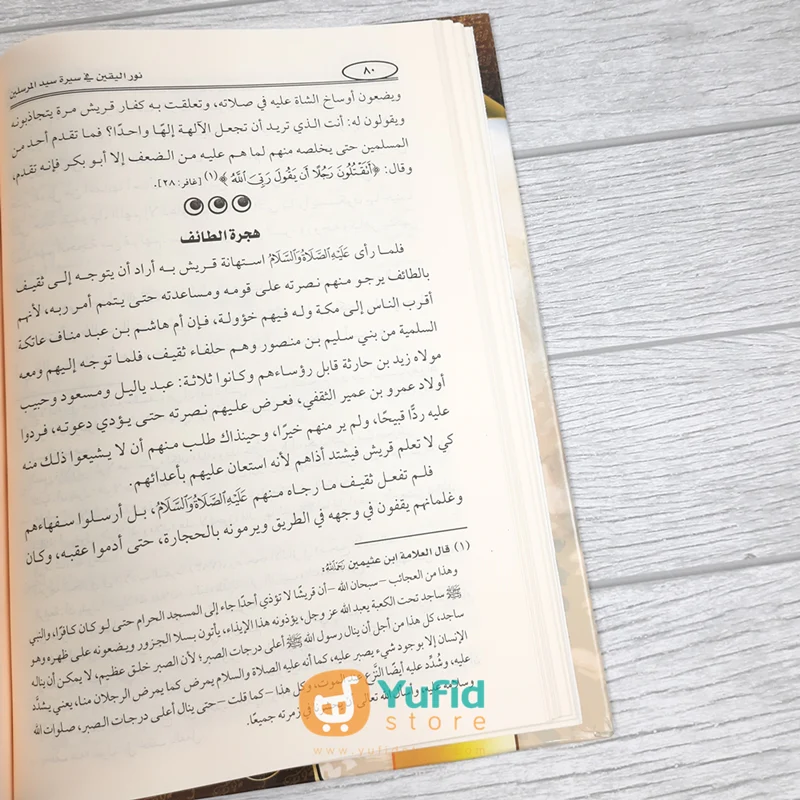 ٨٠
نور اليقين في سيرة سيد المرسلين
ويضعون أوساخ الشاة عليه في صلاته، وتعلقت به كفار قريش مرة يتجاذبونه
ويقولون له: أنت الذي تريد أن تجعل الآلهة إلهًا واحدًا؟ فما تقدم أحد من
المسلمين حتى يخلصه منهم لما هم عليه من الضعف إلا أبو بكر فإنه تقدم،
وقال: ﴿أَنَقْتُلُونَ رَجُلًا أَن يَقُولَ رَبِّيَ اللَّهُ﴾(١) [غافر: ٢٨].
هجرة الطائف
فلما رأى عَلَيْهِ الصَّلَاةُ وَالسَّلَامُ استهانة قريش به أراد أن يتوجه إلى ثقيف
بالطائف يرجو منهم نصرته على قومه ومساعدته حتى يتمم أمر ربه، لأنهم
أقرب الناس إلى مكة وله فيهم خؤولة، فإن أم هاشم بن عبد مناف عاتكة
السلمية من بني سليم بن منصور وهم حلفاء ثقيف، فلما توجه إليهم ومعه
مولاه زيد بن حارثة قابل رؤساءهم وكانوا ثلاثة: عبد ياليل ومسعود وحبيب
أولاد عمرو بن عمير الثقفي، فعرض عليهم نصرته حتى يؤدي دعوته، فردوا
عليه ردًّا قبيحًا، ولم ير منهم خيرًا، وحينذاك طلب منهم أن لا يشيعوا ذلك منه
كي لا تعلم قريش فيشتد أذاهم لأنه استعان عليهم بأعدائهم.
فلم تفعل ثقيف ما رجاه منهم عَلَيْهِ الصَّلَاةُ وَالسَّلَامُ، بل أرسلوا سفهاءهم
وغلمانهم يقفون في وجهه في الطريق ويرمونه بالحجارة، حتى أدموا عقبه، وكان
(١) قال العلامة ابن عثيمين رَحِمَهُ اللَّهُ:
وهذا من العجائب – سبحان الله – أن قريشًا لا تؤذي أحدًا جاء إلى المسجد الحرام حتى لو كان كافرًا، والنبي
ﷺ ساجد تحت الكعبة يعبد الله عز وجل، يؤذونه هذا الإيذاء، يأتون بسلا الجزور ويضعونه على ظهره وهو
ساجد، كل هذا من أجل أن ينال رسول الله ﷺ أعلى درجات الصبر؛ لأن الصبر خلق عظيم، لا يمكن أن يناله
الإنسان إلا بوجود شيء يصبر عليه، كما أنه عليه الصلاة والسلام يمرض كما يمرض الرجلان منا، يعني يشدَّد
عليه، وشُدِّد عليه أيضًا النَّزع عند الموت، وكل هذا – كما قلت – حتى ينال أعلى درجات الصبر، صلوات الله
وسلامه عليه، وأسأل الله تعالى في زمرته جميعًا.
Yufid
store
www.yufidstore.com